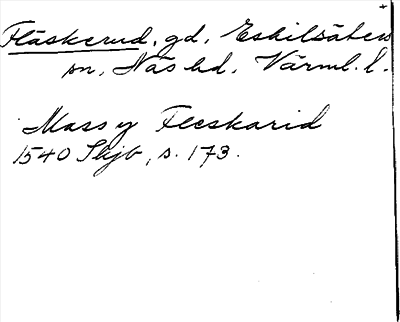 Fläskerud, gd, Eskilsäters
sn, Näs hd, Värml. l.
Mass y Fleskarid
1540 Skjb, s. 173.